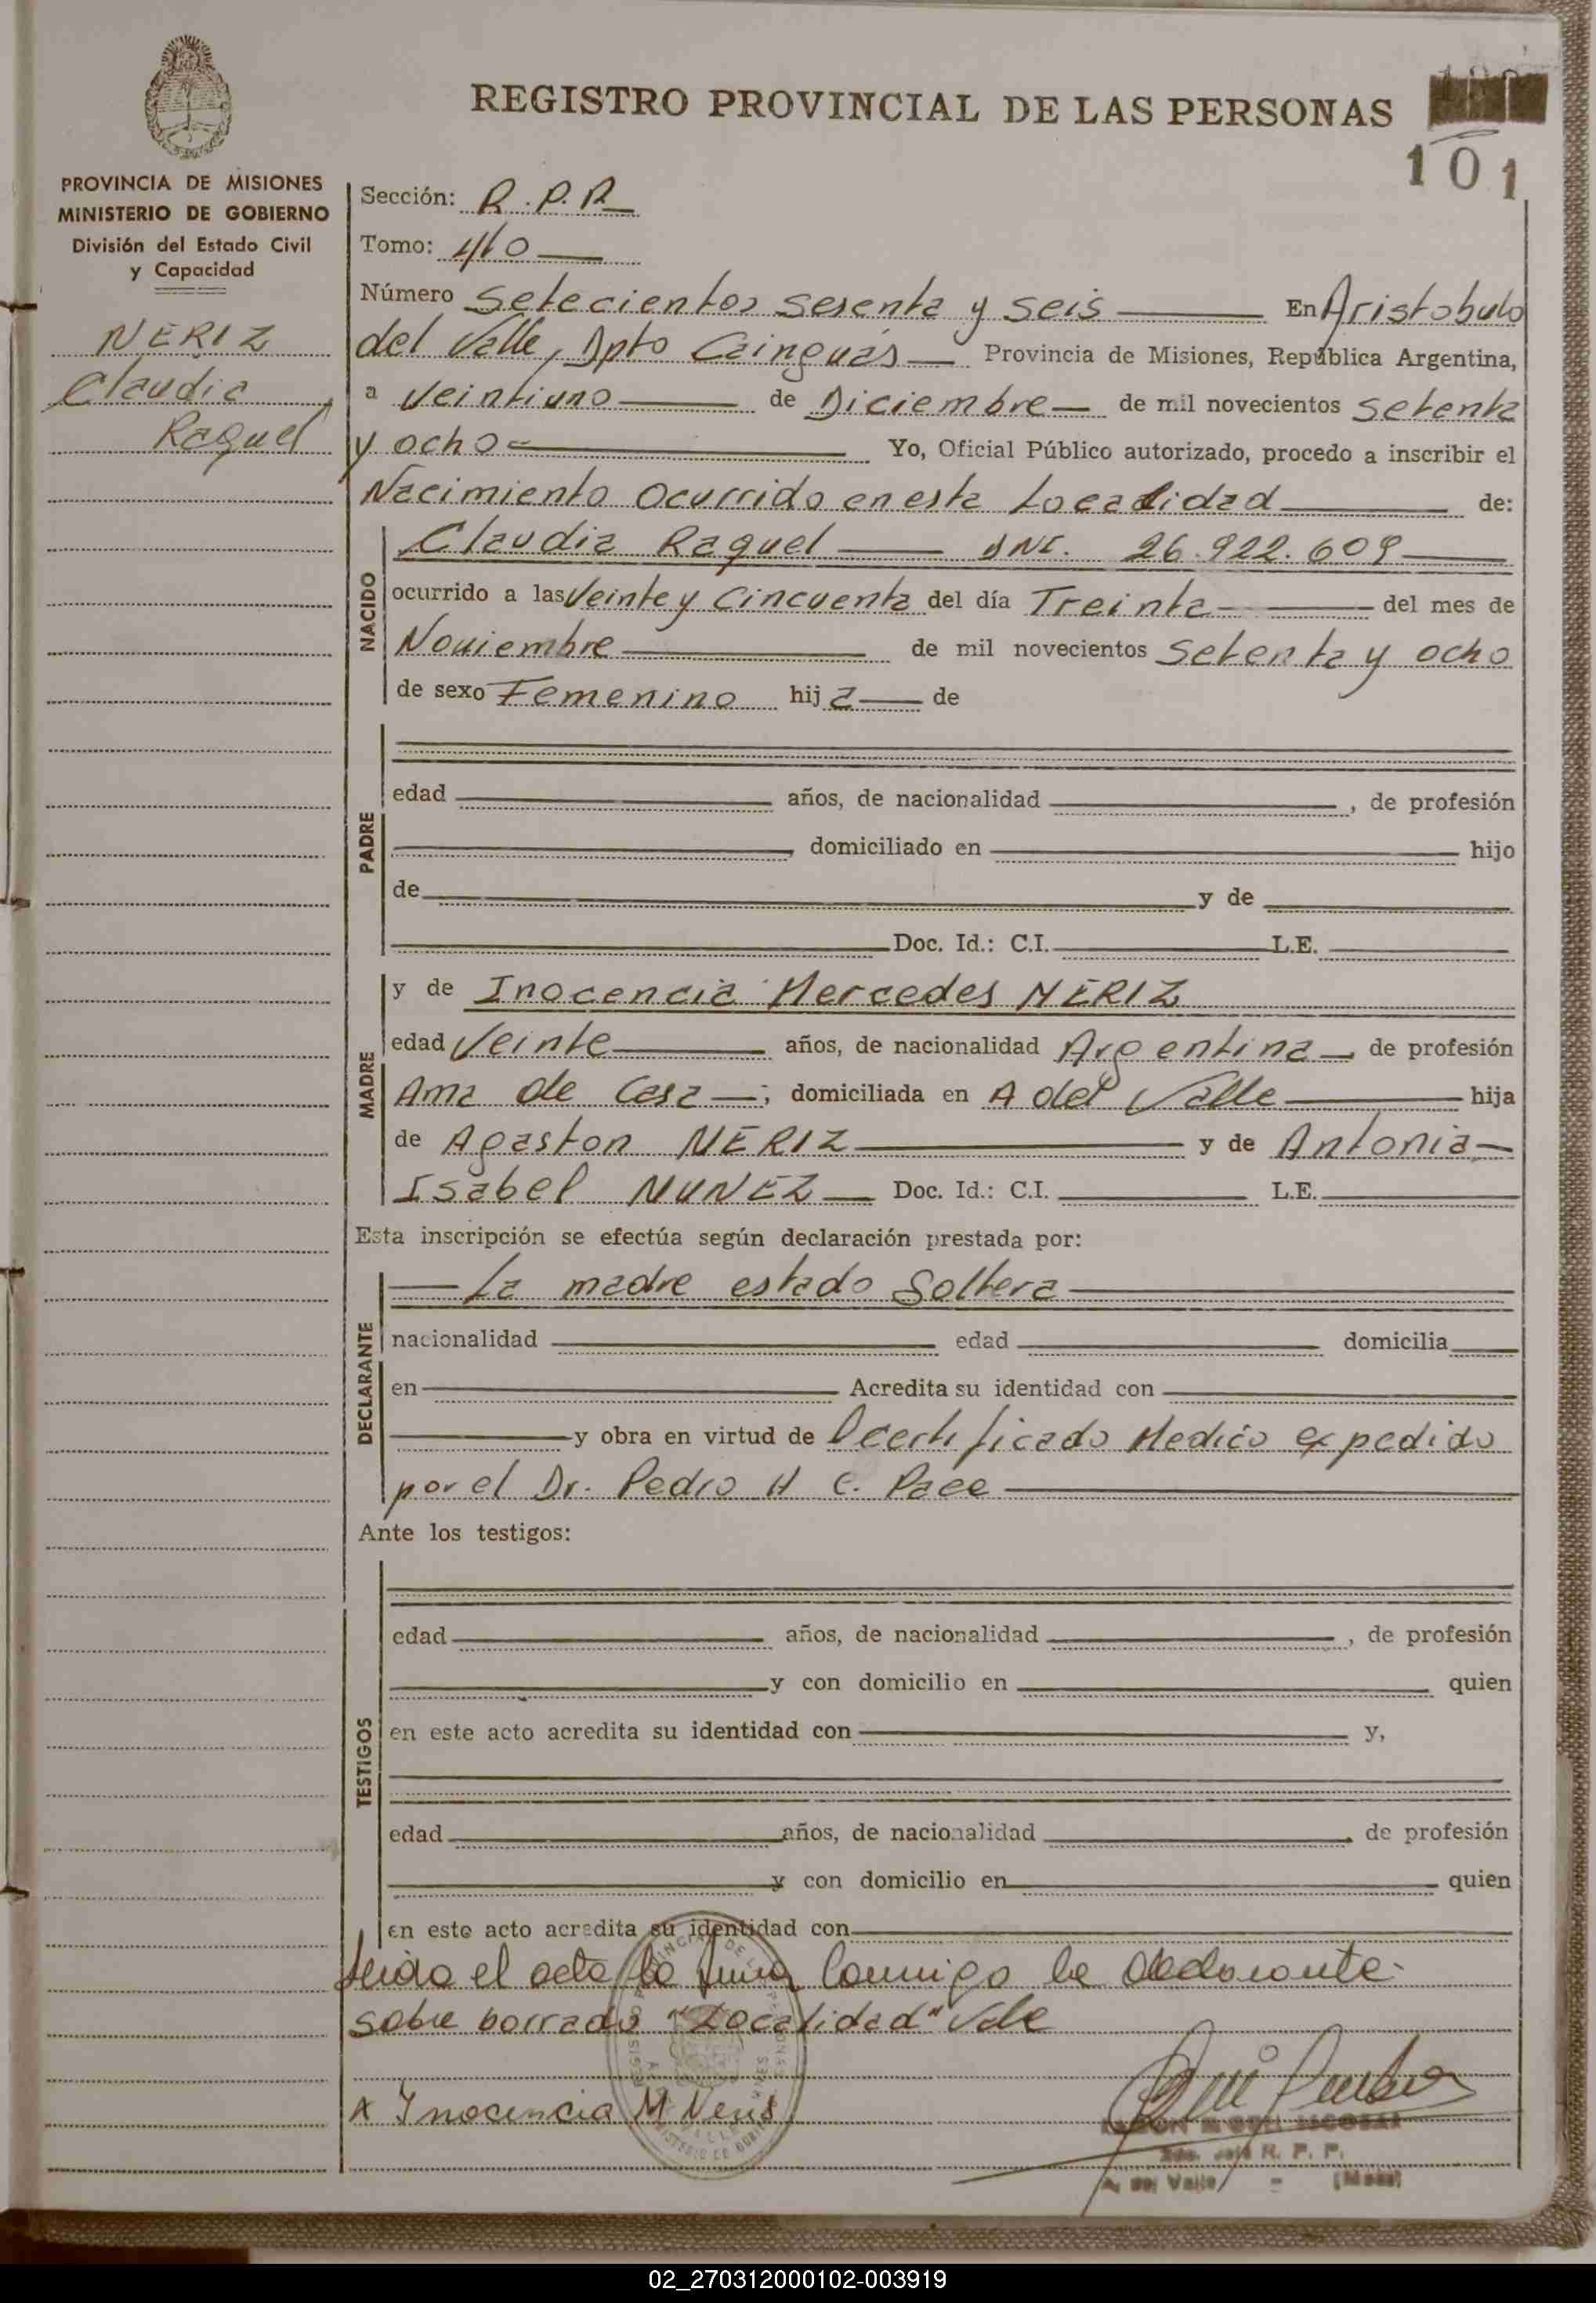 REGISTRO PROVINCIAL DE LAS PERSONAS
101
PROVINCIA DE MISIONES
MINISTERIO DE GOBIERNO
División del Estado Civil
y Capacidad
NERIZ
Claudia
Raquel
Sección: R.P.P.
Tomo: 4/0
Número Setecientos sesenta y seis En Aristobulo
del Valle, Dpto Cainguás Provincia de Misiones, República Argentina,
a Veintiuno de Diciembre de mil novecientos setenta
y ocho Yo, Oficial Público autorizado, procedo a inscribir el
Nacimiento Ocurrido en esta Localidad de:
NACIDO
Claudia Raquel DNI. 26.922.609
ocurrido a las Veinte y Cincuenta del día Treinta del mes de
Noviembre de mil novecientos Setenta y ocho
de sexo Femenino hija de
PADRE
edad años, de nacionalidad , de profesión
, domiciliado en hijo
de y de
Doc. Id.: C.I. L.E.
MADRE
y de Inocencia Mercedes NERIZ
edad Veinte años, de nacionalidad Argentina, de profesión
Ama de Casa ; domiciliada en A del Valle hija
de Agaston NERIZ y de Antonia
Isabel NUNEZ Doc. Id.: C.I. L.E.
Esta inscripción se efectúa según declaración prestada por:
DECLARANTE
La madre estado Soltera
nacionalidad edad domicilia
en Acredita su identidad con
y obra en virtud de Certificado Medico expedido
por el Dr. Pedro H C. Pace
Ante los testigos:
TESTIGOS
edad años, de nacionalidad , de profesión
y con domicilio en quien
en este acto acredita su identidad con y,
edad años, de nacionalidad de profesión
y con domicilio en quien
en este acto acredita su identidad con
Leida el acta la firma conmigo la declarante.
sobre borrado "Localidad" Vale
x Inocencia M Neris
RAMON MIGUEL ESCOBAR
R. P. P.
A. del Valle - (Mnes)
02_270312000102-003919